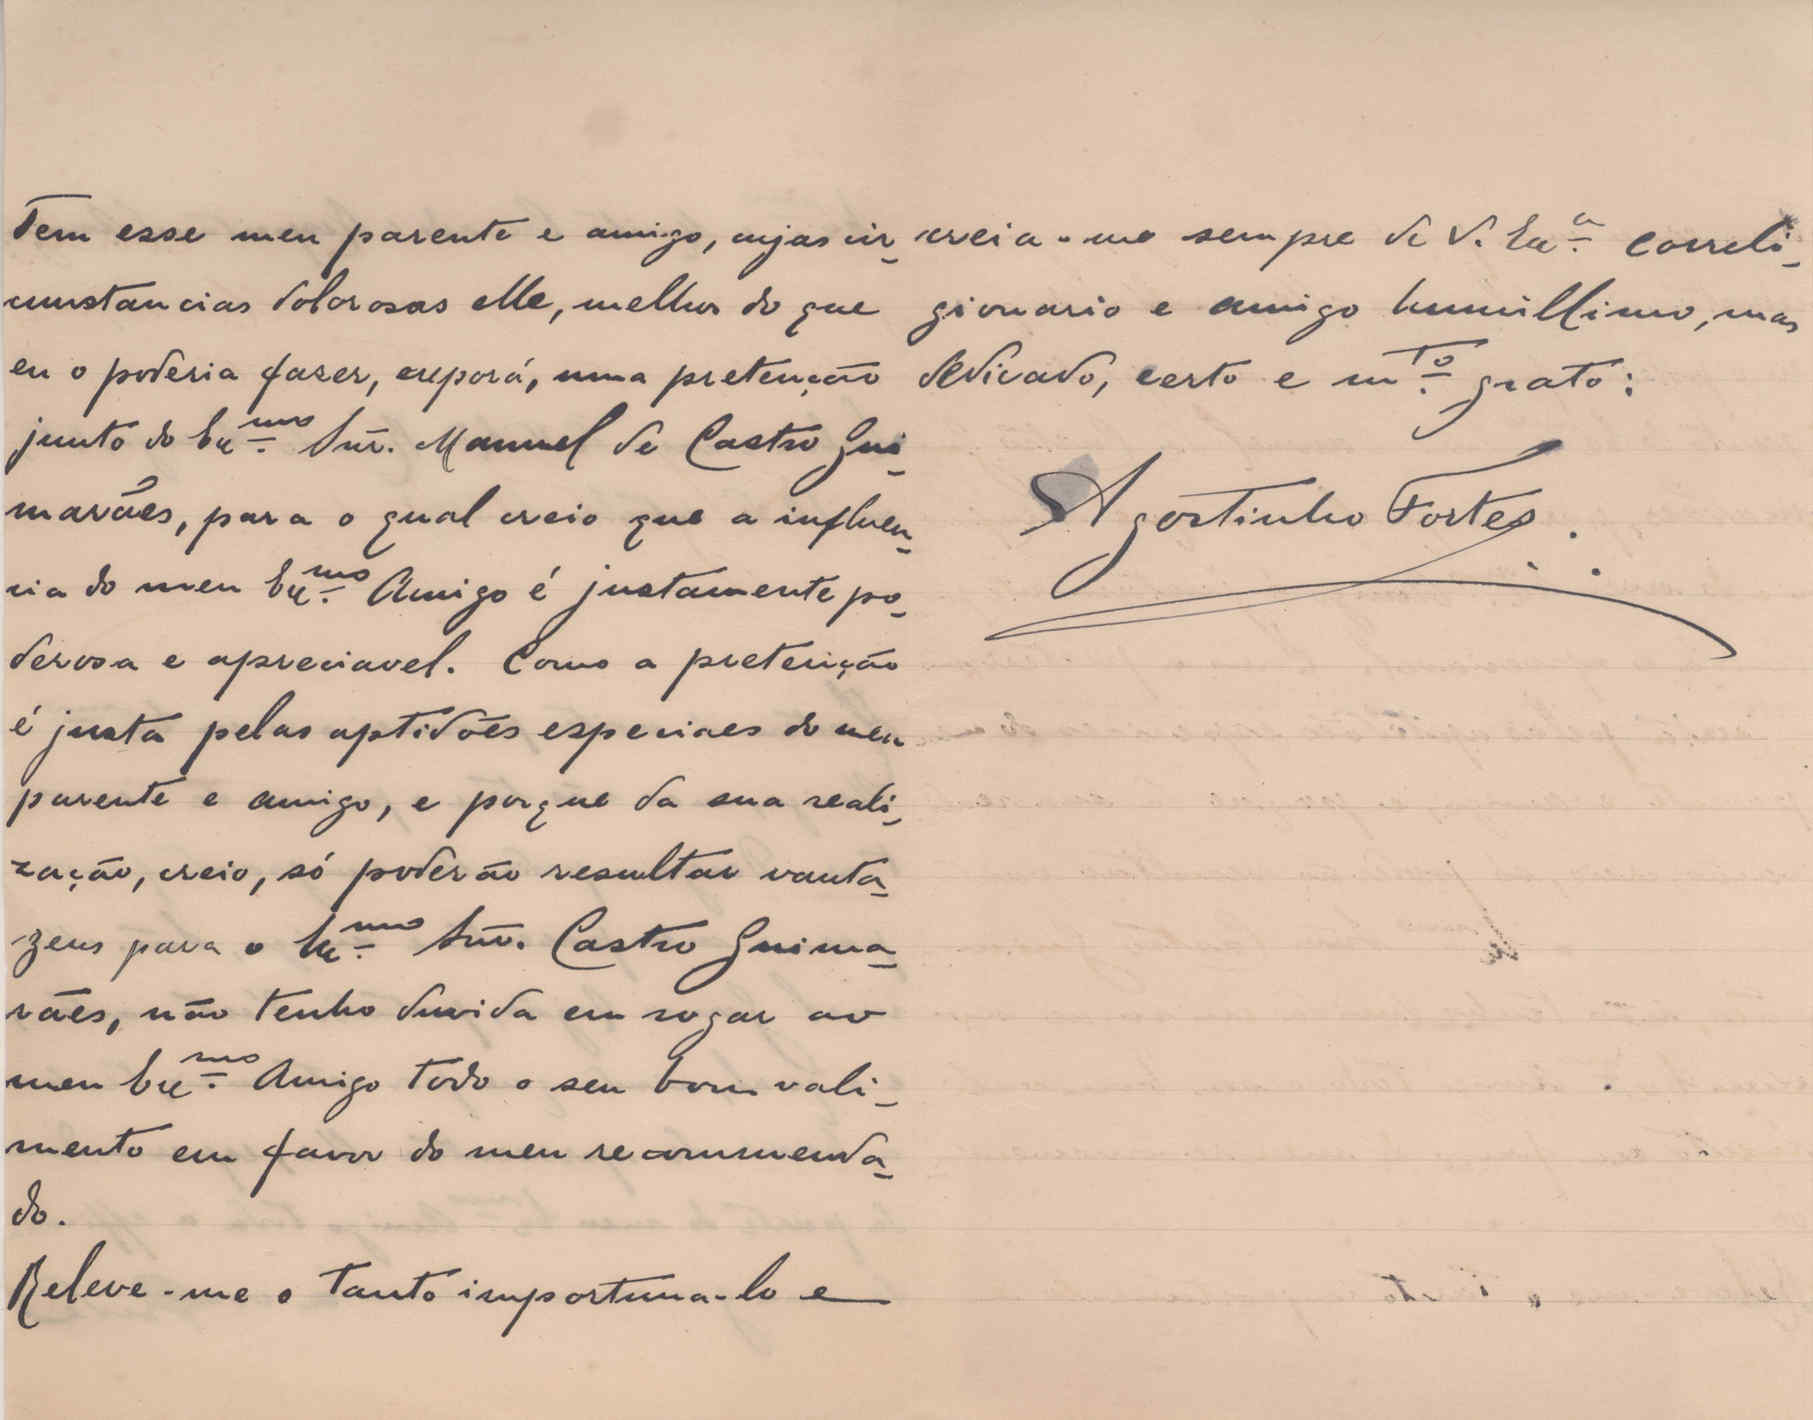 Tem esse meu parente e amigo, cujas cir-
cunstancias dolorosas elle, melhor do que
eu o poderia fazer, exporá, uma pretenção
junto do Ex.mo Snr. Manuel de Castro Gui-
marães, para o qual creio que a influen-
cia do meu Ex.mo Amigo é justamente po-
derosa e apreciavel. Como a pretenção
é justa pelas aptidões especiaes do meu
parente e amigo, e porque da sua reali-
zação, creio, só poderão resultar vanta-
gens para o Ex.mo Snr. Castro Guima-
rães, não tenho duvida em rogar ao
meu Ex.mo Amigo todo o seu bom vali-
mento em favor do meu recommenda-
do.
Releve-me o tanto importuna-lo e
creia-me sempre de V. Ex.a correli-
gionario e amigo humillimo, mas
dedicado, certo e m.to grato:
Agostinho Fortes.